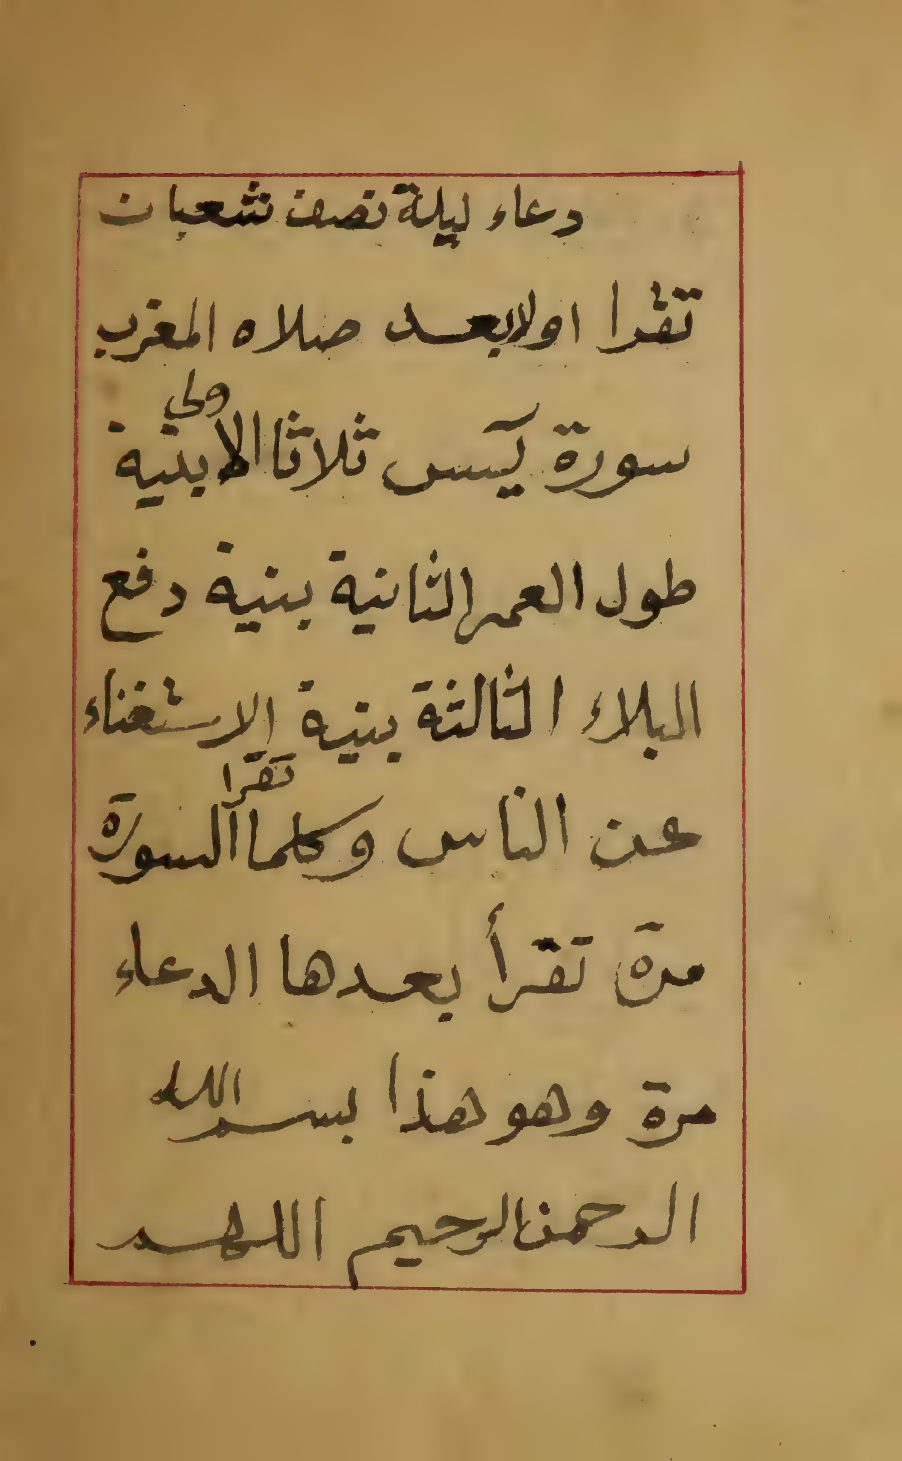 دعاء ليلة نصف شعبان
تقرا اولا بعد صلاه المغرب
سورة يس ثلاثا الاولى بنية
طول العمر الثانية بنية دفع
البلاء الثالثة بنية الاستغناء
عن الناس وكلما تقرا السورة
مرة تقرأ بعدها الدعاء
مرة وهو هذا بسم الله
الرحمن الرحيم اللهم